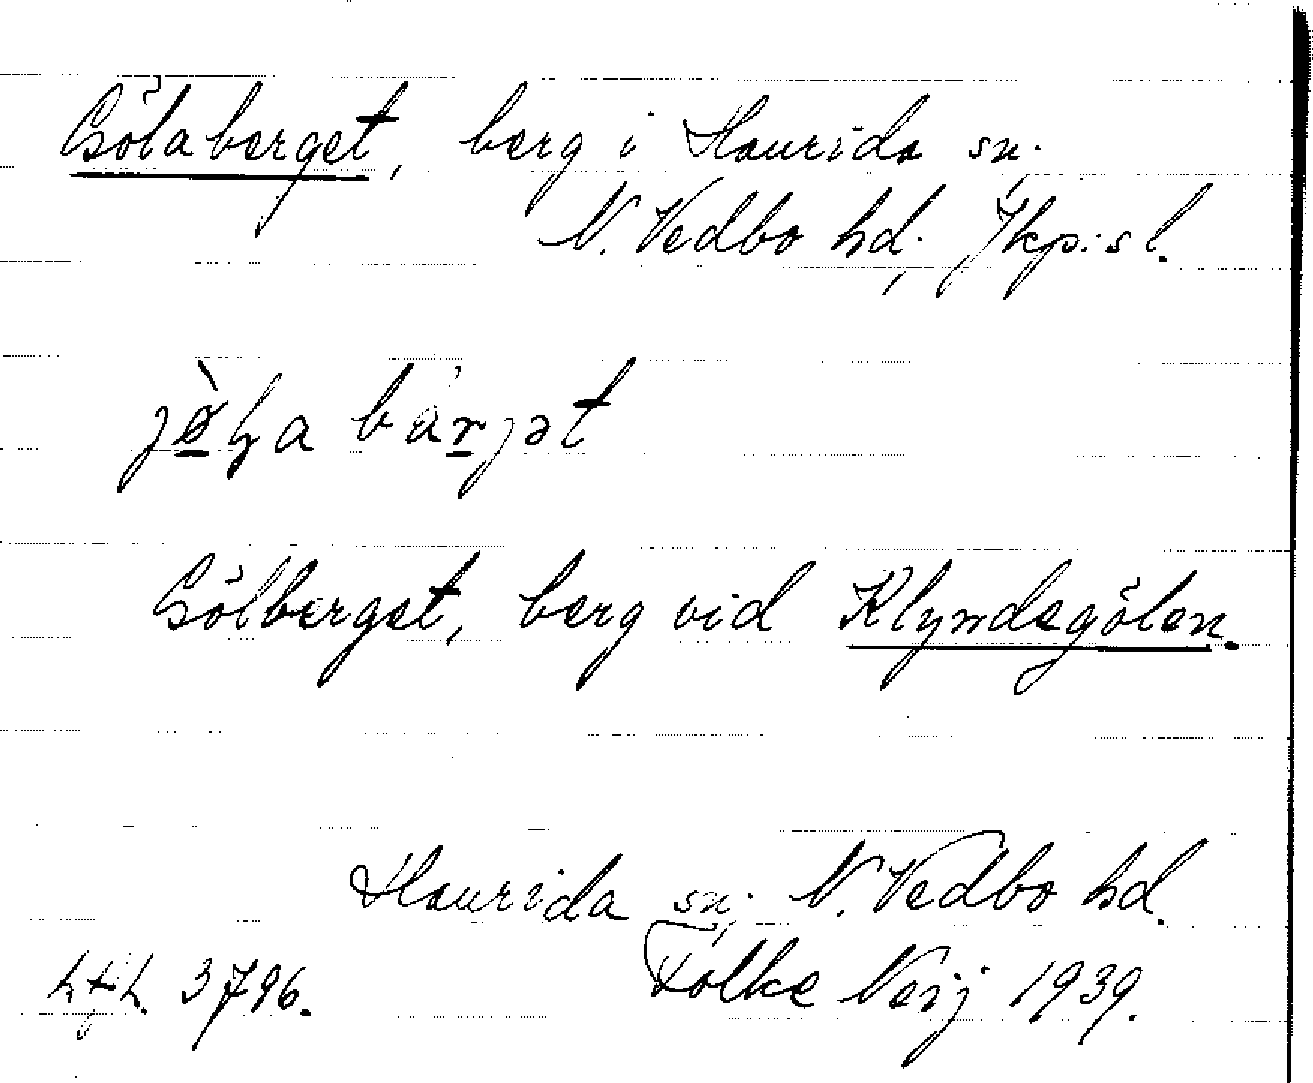 Gölaberget, berg i Haurida sn.
N. Vedbo hd, Jkp:s l.
jø̀ɭa bærjət
Gölberget, berg vid Klyndegölen.
Haurida sn, N. Vedbo hd.
3796. Folke Neij 1939.